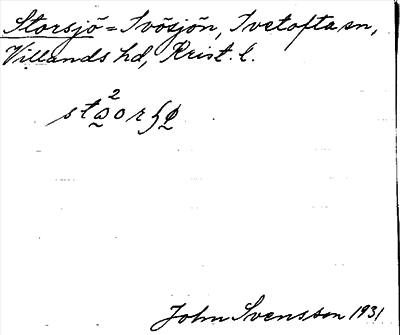 Storsjö = Ivösjön, Ivetofta sn,
Villands hd, Krist. l.
John Svensson 1931